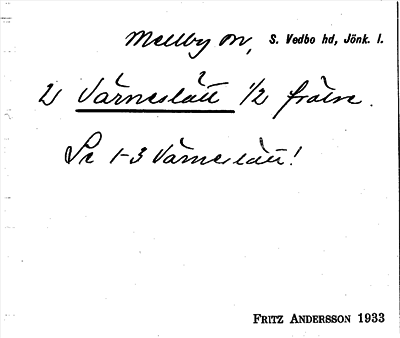 Mellby sn, S. Vedbo hd, Jönk. l.
2) Värneslätt 1/2 frälse.
Se 1-3 Värneslätt!
FRITZ ANDERSSON 1933